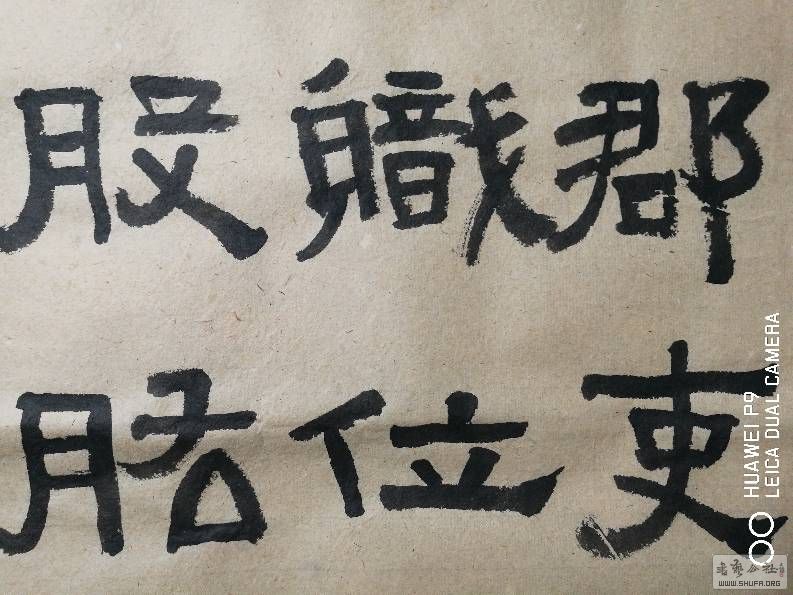 郡吏
軄位
股肱
HUAWEI P9
LEICA DUAL CAMERA
書藝公社
WWW.SHUFA.ORG